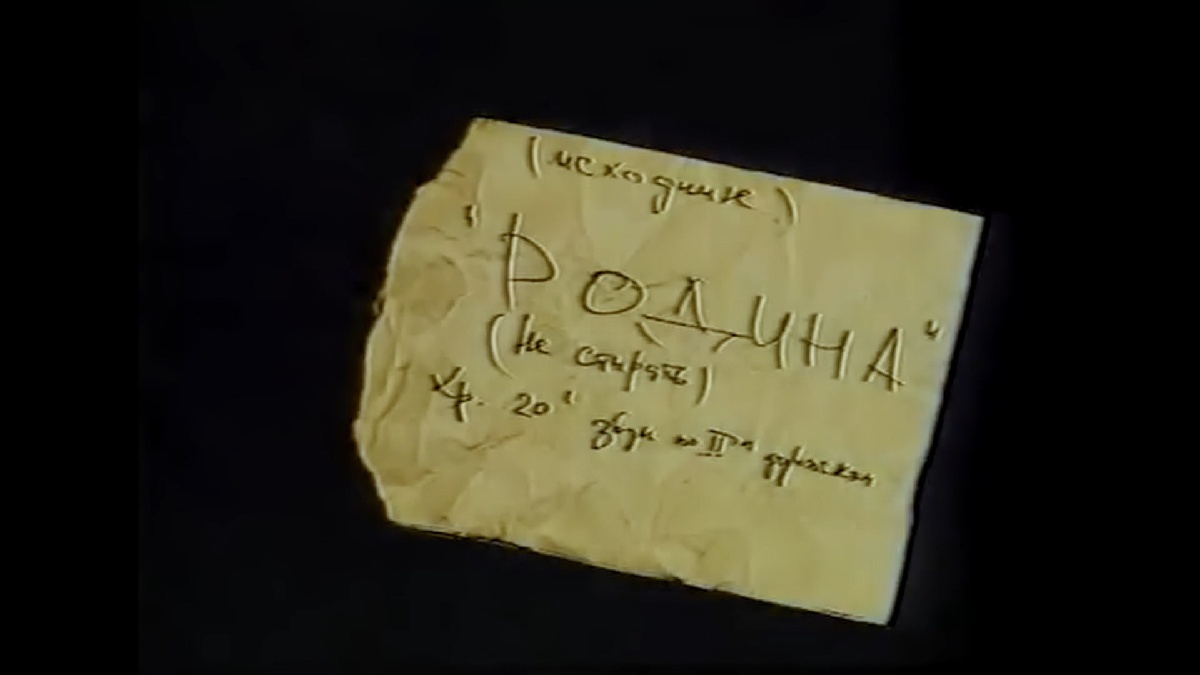 (исходник)
"РОДИНА"
(Не стирать)
Хр. 20' звук по II ой дорожке